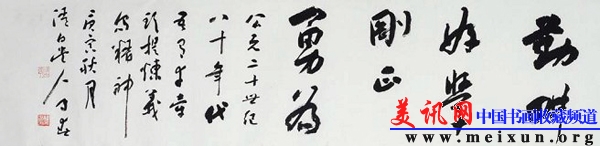 勤耕
好學
剛正
勇為
公元二十世纪
八十年代
吾有幸
头提煉義
烏精神
庚寅秋月
清白堂人
美讯网
中国书画收藏频道
www.meixun.org